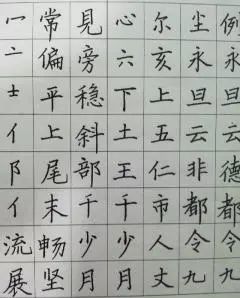 一常見心尔尘例
亠偏旁六亥永永
士平稳下上旦旦
亻上斜土五云云
阝尾部王仁非德
亻末千千市都都
流畅少少人令令
展坚月月丈九九